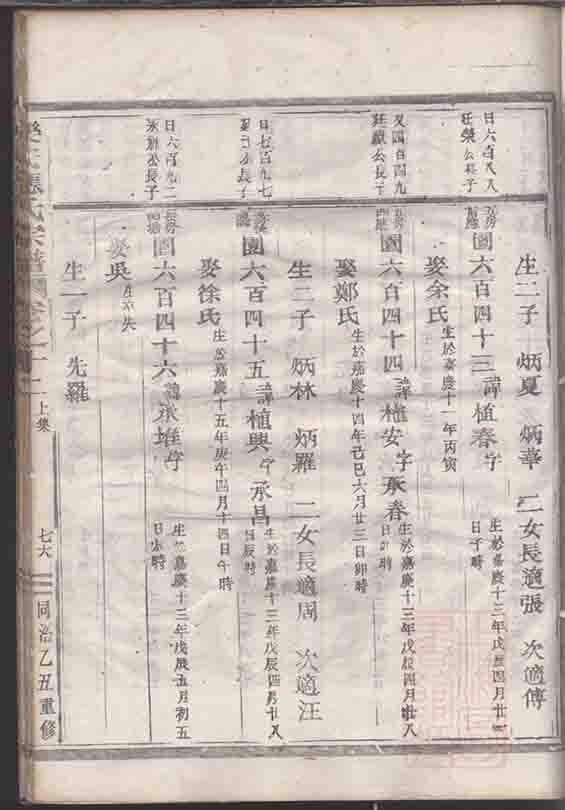 生二子 炳夏 炳華 二女長適張 次適傅
日六百八八
旺榮公長子
圖六百四十三諱植春字
生於嘉慶十三年戊辰四月廿
日子時
娶余氏生於嘉慶十一年丙寅
又四百四九
旺 公長子
圖六百四十四諱植安字承春
生於嘉慶十三年戊辰四月廿八
日 時
娶鄭氏生於嘉慶十四年己巳六月廿三日卯時
生二子 炳林 炳羅 二女長適周 次適汪
日七百九七
公長子
圖六百四十五諱植興字承昌
生於嘉慶十三年戊辰四月廿八
日辰時
娶徐氏生於嘉慶十五年庚午四月十四日午時
日六百九二
公長子
圖六百四十六諱承堆字
生於嘉慶十三年戊辰五月初五
日 時
娶吳
生一子 先羅
氏宗譜 卷之十二上集 七六 同治乙丑重修